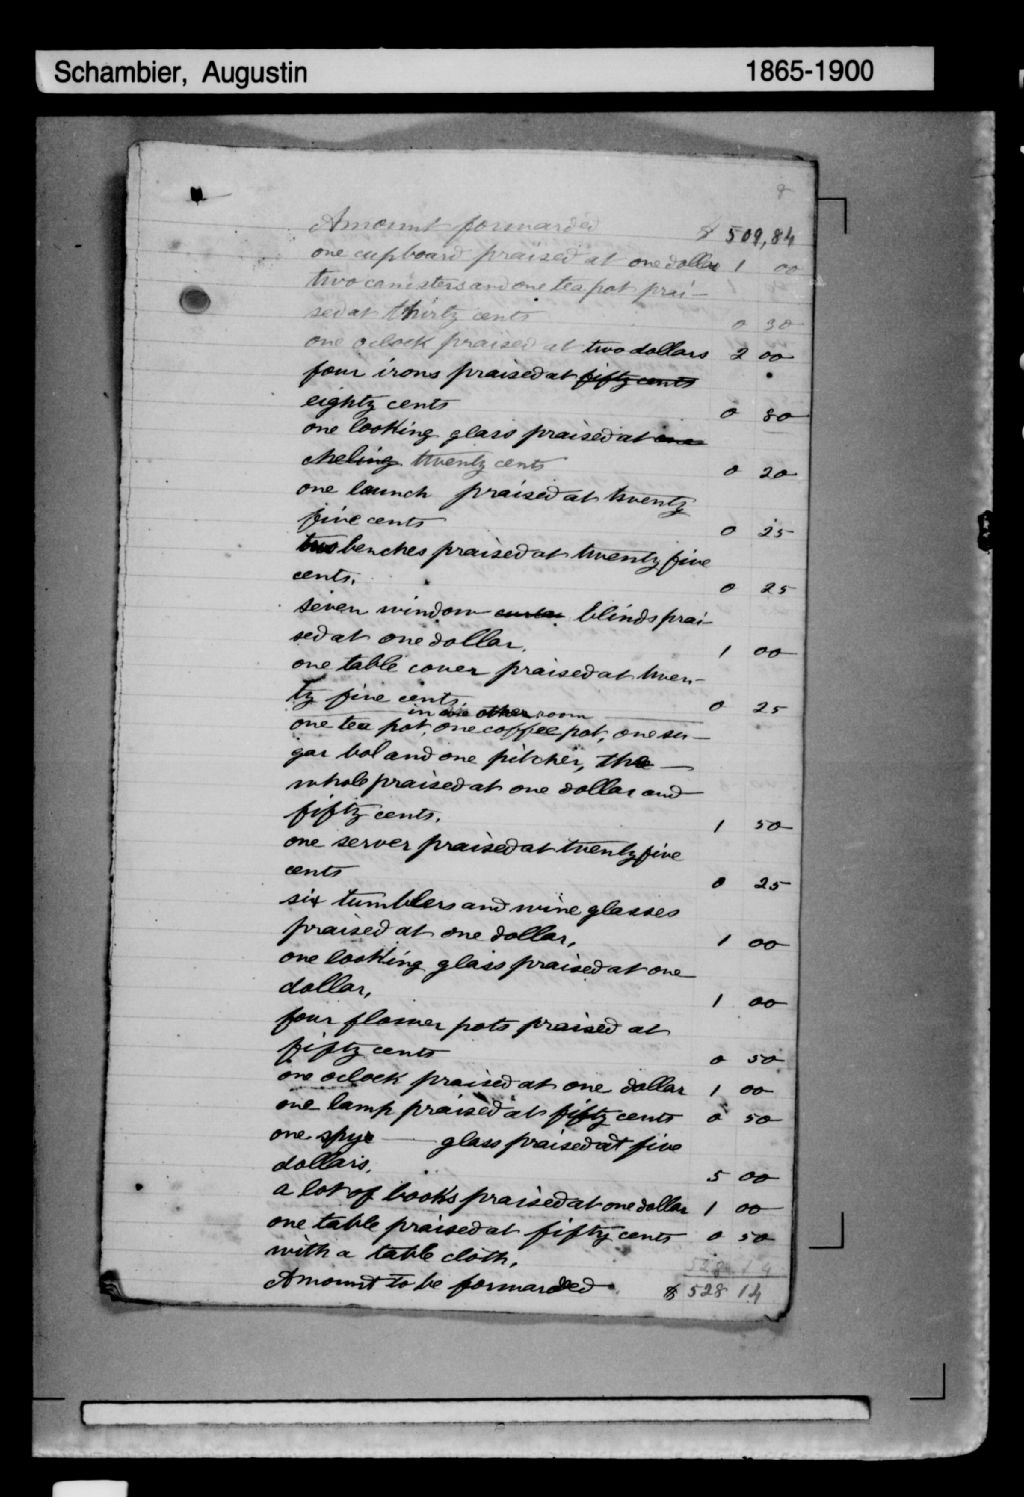 Schambier, Augustin 1865-1900
8
Amount forwarded $ 509,84
one cupboard praised at one dollar 1 00
two canisters and one tea pot prai-
sed at thirty cents 0 30
one oclock praised at two dollars 2 00
four irons praised at fifty cents
eighty cents 0 80
one looking glass praised at one
cheling twenty cents 0 20
one launch praised at twenty
five cents 0 25
two benches praised at twenty five
cents. 0 25
seven window curtai blinds prai-
sed at one dollar. 1 00
one table cover praised at twen-
ty five cents. 0 25
in other room
one tea pot, one coffee pot, one su-
gar bol and one pitcher, the
whole praised at one dollar and
fifty cents. 1 50
one server praised at twenty five
cents 0 25
six tumblers and wine glasses
praised at one dollar, 1 00
one looking glass praised at one
dollar, 1 00
four flower pots praised at
fifty cents 0 50
one oclock praised at one dollar 1 00
one lamp praised at fifty cents 0 50
one spye glass praised at five
dollars. 5 00
a lot of books praised at one dollar 1 00
one table praised at fifty cents 0 50
with a table cloth.
528 14
Amount to be forwarded $ 528 14